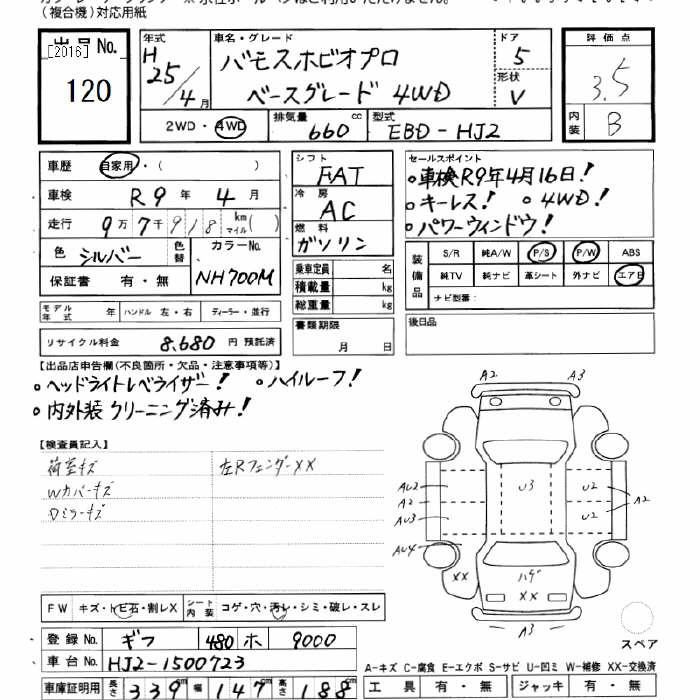 (複合機)対応用紙
出品No.
[2016]
120
年式
H25/4月
車名・グレード
バモスホビオプロ
ベースグレード 4WD
ドア
5
形状
V
評価点
3.5
内装
B
2WD・4WD
排気量 660 cc
型式 EBD-HJ2
車歴 自家用・( )
車検 R9年 4月
走行 9万7千918 km マイル( )
色 シルバー 色替
カラーNo. NH700M
保証書 有・無
モデル年式 年 ハンドル 左・右 ディーラー・並行
リサイクル料金 8,680円 預託済
シフト
FAT
冷房
AC
燃料
ガソリン
乗車定員 名
積載量 kg
総重量 kg
書類期限
月 日
セールスポイント
●車検R9年4月16日!
●キーレス! ●4WD!
●パワーウィンドウ!
装備品
S/R 純A/W P/S P/W ABS
純TV 純ナビ 革シート 外ナビ エアB
ナビ型番:
後日品
【出品店申告欄(不良箇所・欠品・注意事項等)】
●ヘッドライトレベライザー! ●ハイルーフ!
●内外装クリーニング済み!
【検査員記入】
荷室キズ 左Rフェンダーxx
Wカバーキズ
Dミラーキズ
A2 A3
AU2
A2
AU3
AU4
U3
U2
U2
A2
XX
ハゲ
XX
A3
スペア
FW キズ・トビ石・割レX
シート内装 コゲ・穴・汚レ・シミ・破レ・スレ
登録No. ギフ 480 ホ 9000
車台No. HJ2-1500723
車庫証明用 長さ 339cm 幅 147cm 高さ 188cm
A-キズ C-腐食 E-エクボ S-サビ U-凹ミ W-補修 XX-交換済
工具 有・無 ジャッキ 有・無